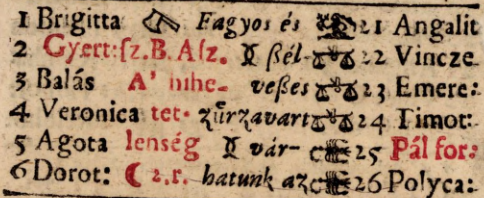 1 Brigitta Fagyos és 21 Angalit
2 Gyert: ſz. B. Aſz. ßél- 22 Vincze
3 Balás A' hihe- veßes 23 Emere:
4 Veronica tet- zűrzavart 24 Timot:
5 Agota lenség vár- 25 Pál for:
6 Dorot: 2. r. hatunk az 26 Polyca: